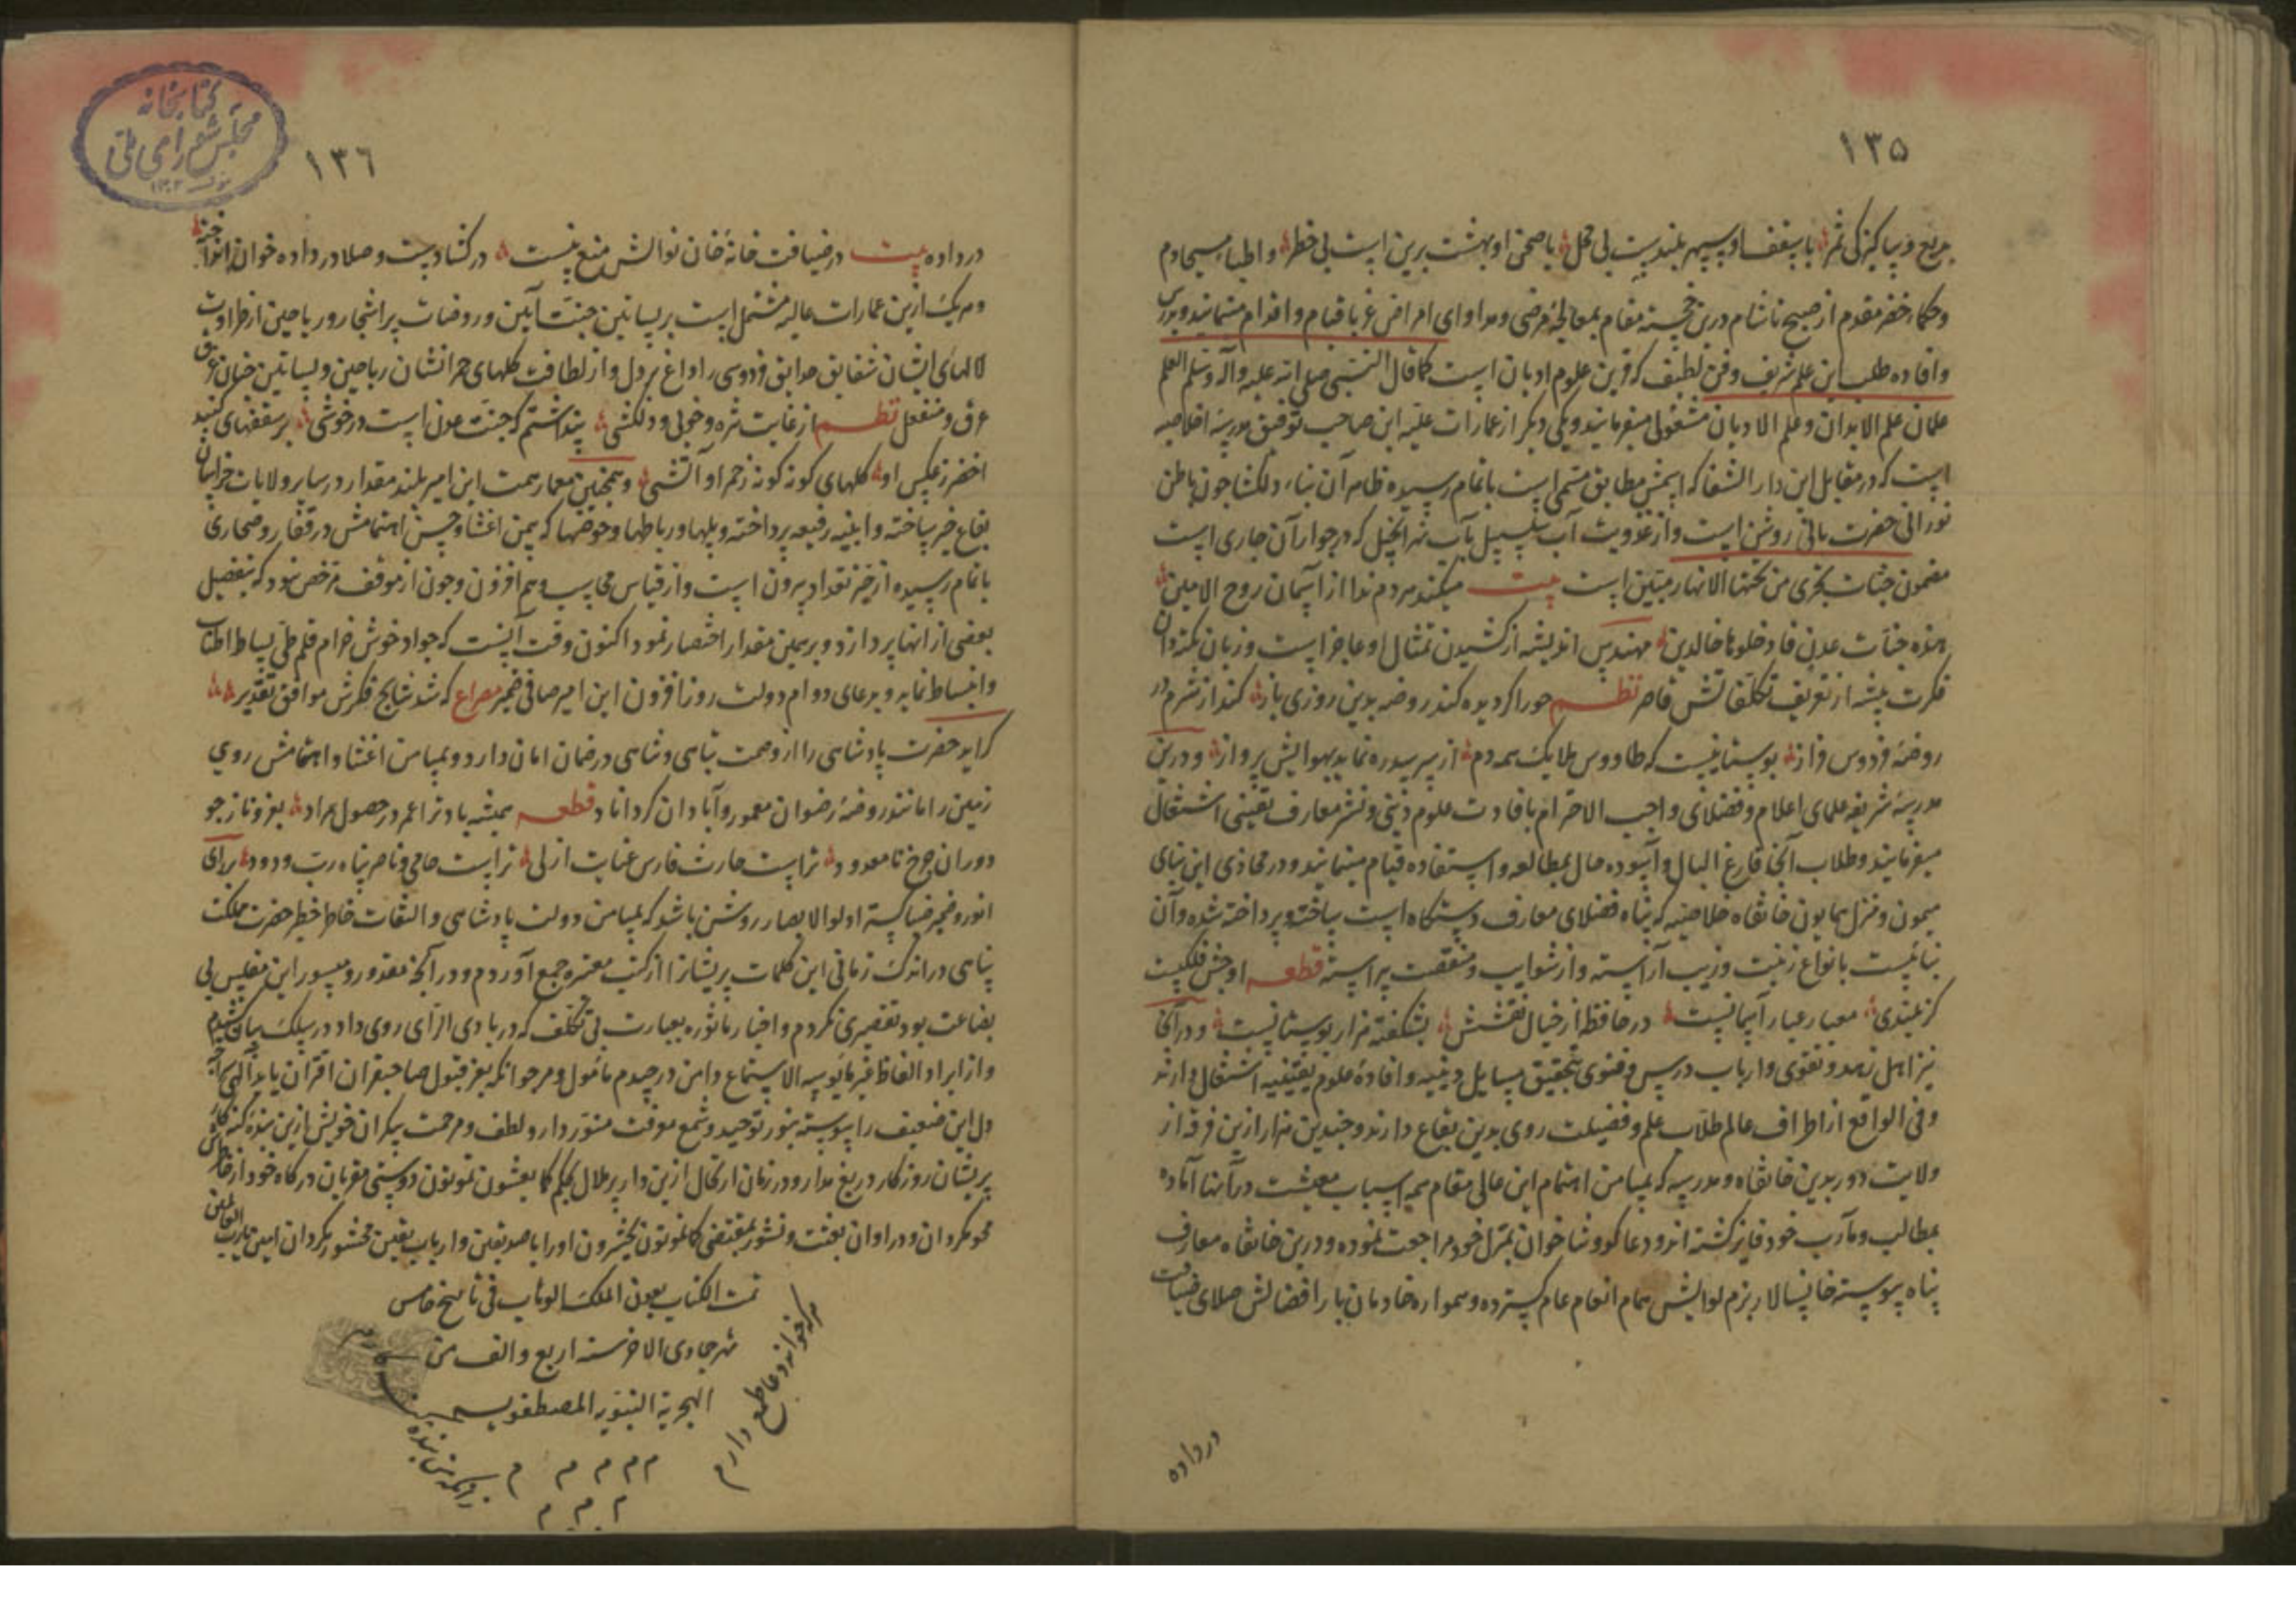 ۱۳۵
بدیع و پاکیزکی ثمر با سقف او سپهر بلندیست بی محل با صحن او بهشت برین است بی خطر و اطباء مسیحا دم
و حکماء خضر مقدم از صبح تا شام درین خجسته مقام بمعالجهٔ مرضی و مداوای امراض غربا قیام و اقدام مینمایند و بدرس
و افاده طلب این علم شریف و فن لطیف که قرین علوم ادیان است کما قال النبی صلی الله علیه وآله وسلم العلم
علمان علم الابدان و علم الادیان مشغولی میفرمایند و یکی دیکر از عمارات علیه این صاحب توفیق مدرسهٔ اخلاصیه
است که در مقابل این دار الشفا که اسمش مطابق مسمی است باتمام رسیده ظاهر آن بناء دلکشا چون باطن
نورانی حضرت بانی روشن است و از عذوبت آب سلسبیل مآب نهر انجیل که در جوار آن جاری است
مضمون جنات تجری من تحتها الانهار مبین است بیت میکند هر دم ندا از آسمان روح الامین
هذه جنات عدن فادخلوها خالدین مهندس اندیشه از کشیدن تمثال او عاجز است و زبان نکته دان
فکرت پیشه از تعریف تکلفاتش قاصر نظم حورا کر دیده کند روضه بدین روزی باز کند از شرم در
روضهٔ فردوس فراز بوستانیست که طاووس ملایک همه دم از سر سدره نماید بهوایش پرواز و درین
مدرسهٔ شریفه علمای اعلام و فضلای واجب الاحترام بافادت علوم دینی و نشر معارف یقینی اشتغال
میفرمایند و طلاب آنجا فارغ البال و آسوده حال بمطالعه و استفاده قیام مینمایند و در محاذی این بنای
میمون و منزل همایون خانقاه خلاصیه که پناه فضلای معارف دستکاه است ساخته و پرداخته شده و آن
بنائیست بانواع زینت و زیب آراسته و از شوایب و منقصت پیراسته قطعه اوجش فلکیست
کز بلندی معیار عیار آسمانیست در حافظ از خیال نقشش بشکفته هزار بوستانیست و در آنجا
نیز اهل زهد و تقوی و ارباب درس و فتوی بتحقیق مسایل دینیه و افادهٔ علوم یقینیه اشتغال دارند
و فی الواقع از اطراف عالم طلاب علم و فضیلت روی بدین بقاع دارند و چندین هزار ازین فرقه از
ولایت دور بدین خانقاه و مدرسه که بمیامن اهتمام این عالی مقام همه اسباب معیشت در آنها آماده
بمطالب و مآرب خود فایز کشته اند و دعا کو و ثنا خوان بمنزل خود مراجعت نموده و درین خانقاه معارف
پناه پیوسته خانسالار بزم نوالش سماط انعام عام کسترده و همواره خادمان بار افضالش صلای ضیافت
در داده
۱۳۶
کتابخانه
مجلس شورای ملی
در داده بیت در ضیافت خانهٔ خان نوالش منع نیست در کشادست و صلا در داده خوان انداخته
و هر یک ازین عمارات عالیه مشتمل است بر بساتین جنت آیین و روضات پر اشجار و ریاحین از طراوت
لالهای ایشان شقایق حدایق فردوسی را داغ بر دل و از لطافت کلهای حمرانشان ریاحین و بساتین جنان غرق
عرق و منفعل نظم از غایت نزه و خوبی و دلکشی پنداشتم که جنت عدن است در خوشی بر سقفهای کنبد
اخضر ز عکس او کلهای کونه کونه ز حمرا و آتشی و همچنین معمار همت این امیر بلند مقدار در سایر ولایات خراسان
بقاع خیر ساخته و ابنیه رفیعه پرداخته و پلها و رباطها و حوضها که بیمن اعتنا و حسن اهتمامش در قفار و صحاری
باتمام رسیده از حیز تعداد بیرون است و از قیاس محاسب وهم افزون و چون از موقف مرخص نبود که بتفصیل
بعضی از انها پردازد و بر همین مقدار اختصار نمود اکنون وقت آنست که جواد خوش خرام قلم طی بساط اطناب
و انبساط نماید و بدعای دوام دولت روز افزون این امیر صافی ضمیر مصراع که شد نتایج فکرش موافق تقدیر
کراید حضرت پادشاهی را از وصمت تباهی و تناهی در ضمان امان دارد و بمیامن اعتنا و اهتمامش روی
زمین را مانند روضهٔ رضوان معمور و آبادان کرداناد قطعه همیشه باد ترا عمر در حصول مراد بعز و ناز چو
دوران چرخ نامعدود تراست حارث فارس عنایت ازلی تراست حامی و ناصر پناه رب ودود برای
انور و ضمیر ضیا کستر اولوالابصار روشن باشد که بمیامن دولت پادشاهی و التفات خاطر خطیر حضرت مملکت
پناهی در اندک زمانی این کلمات پریشانرا از کتب معتبره جمع آوردم و در آنچه مقدور و میسور این مفلس بی
بضاعت بود تقصیری نکردم و اخبار ماثوره بعبارت بی تکلف که در بادی الرای روی داد در سلک بیان کشیدم
و از ایراد الفاظ غیر مانوسه الاستماع دامن در چیدم مامول و مرجو انکه بعز قبول صاحبقران اقتران یابد الهی
دل این ضعیف را پیوسته بنور توحید و شمع معرفت منور دار و لطف و مرحمت بیکران خویش ازین بنده
پریشان روزکار دریغ مدار و در زمان ارتحال ازین دار پر ملال بحکم کما تعیشون تموتون دوستی مقربان درکاه خود از خاطرش
محو مکردان و در اوان بعثت و نشور بمقتضی کما تموتون تحشرون او را با صدیقین و ارباب یقین محشور بکردان امین یا رب العالمین
تمت الکتاب بعون الملک الوهاب فی تاریخ خامس
شهر جمادی الاخر سنه اربع و الف من
الهجریة النبویه المصطفویه
هر که خواند دعا طمع دارم
زانکه من بنده
م م م م م م
م م م